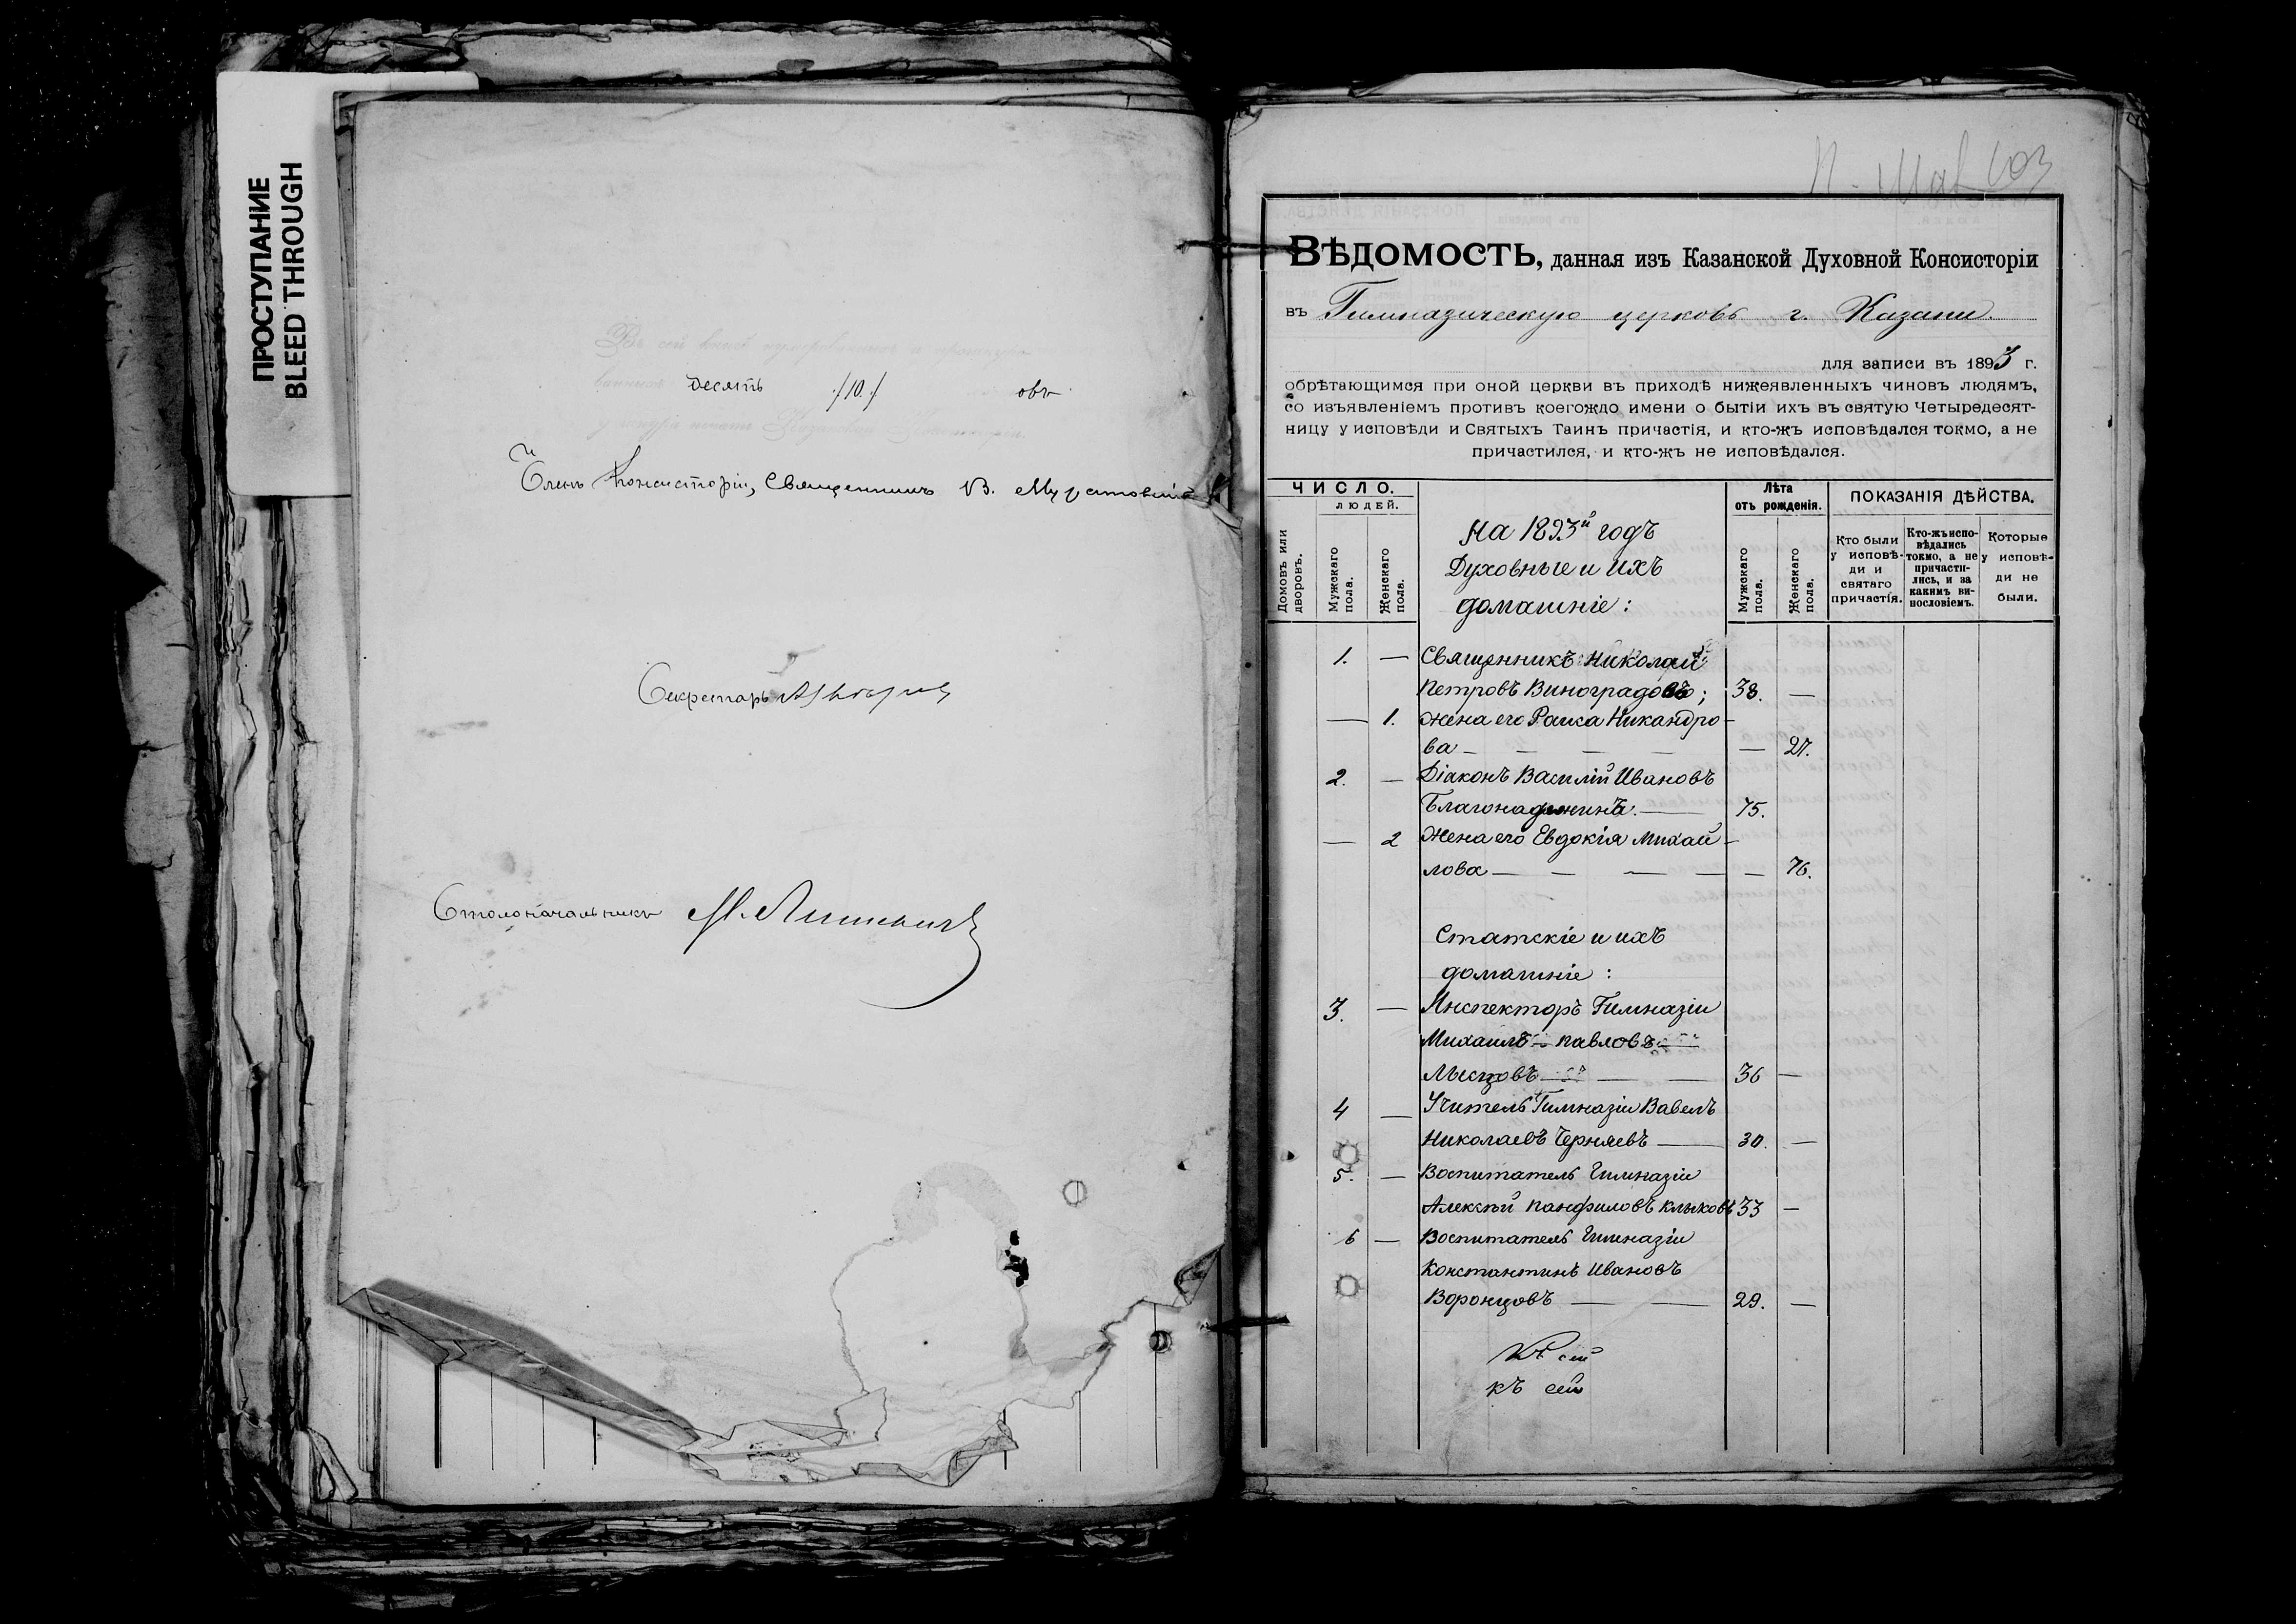 ПРОСТУПАНИЕ
BLEED THROUGH
Въ сей книгѣ нумерованныхъ и
десять /10./ овъ
у шнура печать Казанской Консисторіи.
Членъ Консисторіи, Священникъ В.
Секретарь
Столоначальникъ М.
ВѢДОМОСТЬ, данная изъ Казанской Духовной Консисторіи
въ Гимназическую церковь г. Казани.
для записи въ 1893 г.
обрѣтающимся при оной церкви въ приходѣ нижеявленныхъ чиновъ людямъ,
со изъявленіемъ противъ коегождо имени о бытіи ихъ въ святую Четыредесят-
ницу у исповѣди и Святыхъ Таинъ причастія, и кто-жъ исповѣдался токмо, а не
причастился, и кто-жъ не исповѣдался.
ЧИСЛО.
ЛЮДЕЙ.
Домовъ или дворовъ.
Мужскаго пола.
Женскаго пола.
На 1893й годъ
Духовные и ихъ
домашніе:
Лѣта
отъ рожденія.
Мужскаго пола.
Женскаго пола.
ПОКАЗАНІЯ ДѢЙСТВА.
Кто были у исповѣ-ди и святаго причастія.
Кто-жъ испо-вѣдались токмо, а не причасти-лись, и за какимъ ви-нословіемъ.
Которые у исповѣ-ди не были.
1. — Священникъ Николай
Петровъ Виноградовъ; 38. —
— 1. Жена его Раиса Никандро-
ва — — — — — 27.
2. — Діаконъ Василій Ивановъ
Благонадеждинъ. — 75.
— 2 Жена его Евдокія Михай-
лова — — — — — 76.
Статскіе и ихъ
домашніе:
3. — Инспекторъ Гимназіи
Михаилъ — Павловъ —
Лысцовъ — — — 36 —
4 — Учитель Гимназіи Вавелъ
Николаевъ Черняевъ — 30. —
5. — Воспитатель Гимназіи
Алексѣй Панфиловъ Клыковъ 33 —
6 — Воспитатель Гимназіи
Константинъ Ивановъ
Воронцовъ — — 29. —
Къ сей
къ сей